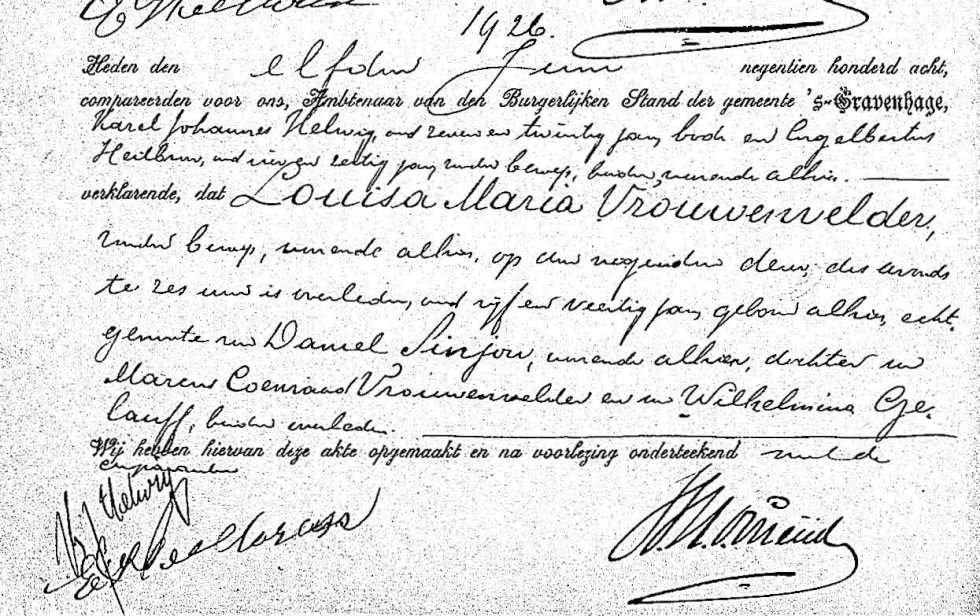 1926.
Heden den elfden Juni negentien honderd acht,
compareerden voor ons, Ambtenaar van den Burgerlijken Stand der gemeente 's-Gravenhage,
Karel Johannes Helwig, oud zeven en twintig jaar, bode en Engelbertus
Heilbron, oud en zestig jaar, zonder beroep, beiden wonende alhier.
verklarende, dat Louisa Maria Vrouwenvelder,
zonder beroep, wonende alhier, op den negenden dezer, des avonds
te zes uur is overleden, oud vijf en veertig jaar, geboren alhier, echt-
genoote van Daniel Sinjou, wonende alhier, dochter van
Marcus Coenraad Vrouwenvelder en van Wilhelmina Ge-
lauff, beiden overleden.
Wij hebben hiervan deze akte opgemaakt en na voorlezing onderteekend met de
comparanten
K J Helwig